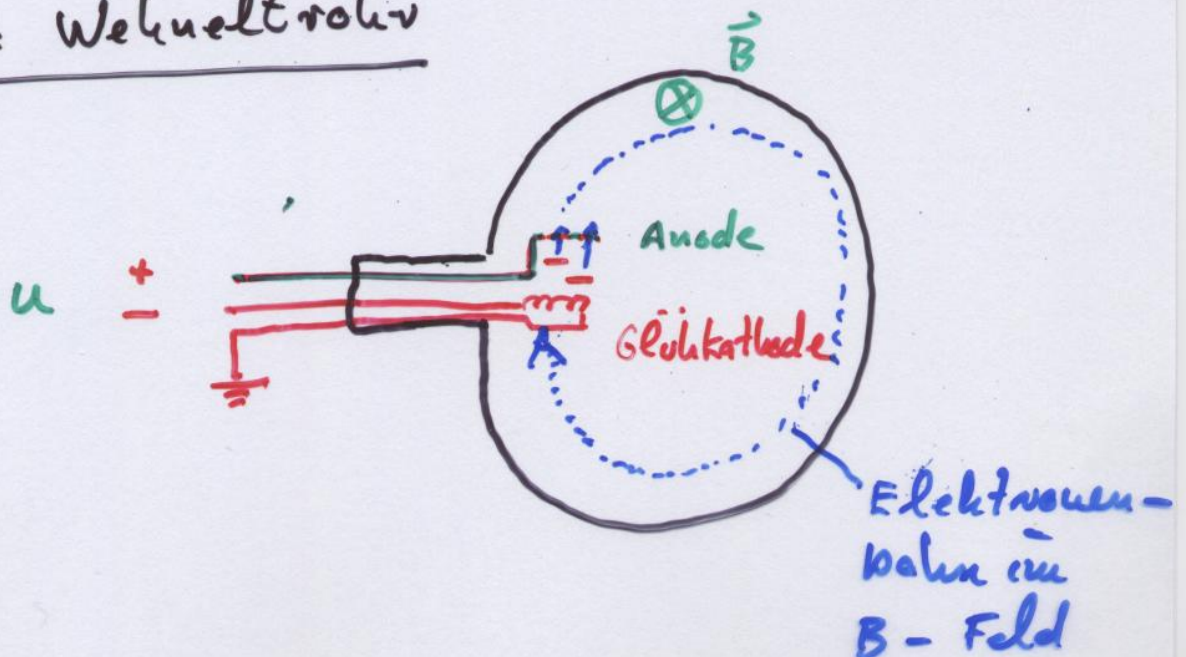 Wehneltrohr
B
Anode
U
+
−
Glühkathode
Elektronen-
bahn im
B - Feld